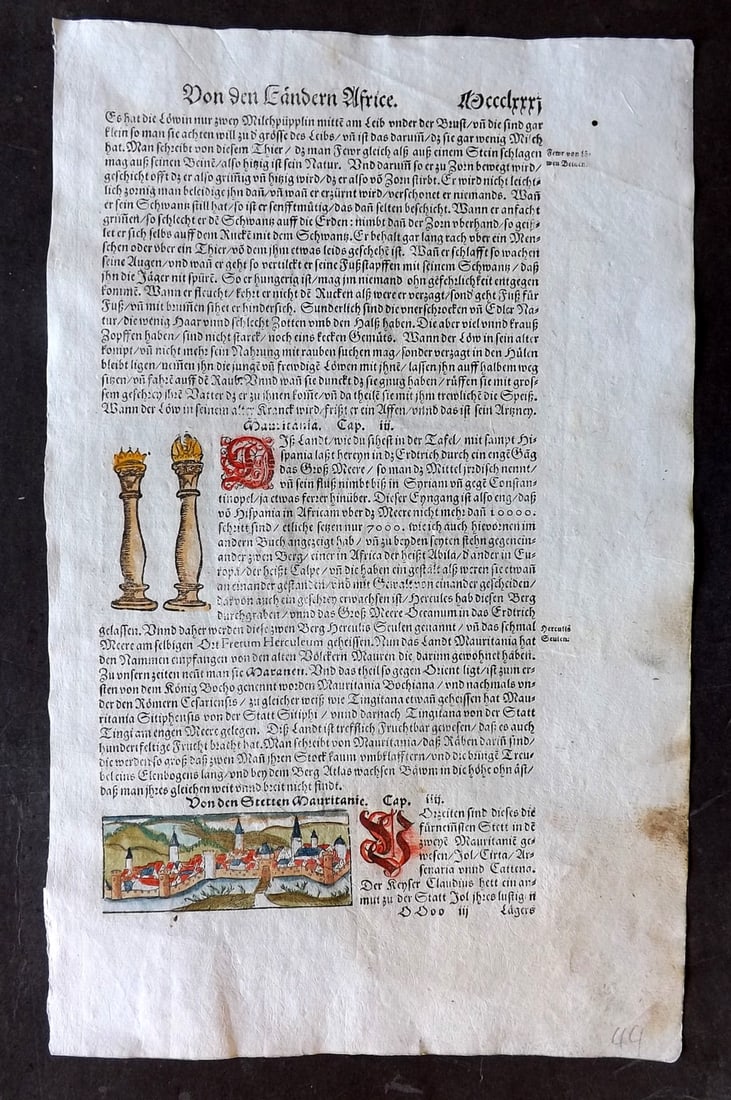 Von den Ländern Africe. Mccclxxxj
Es hat die Löwin nur zwey Milchpüpplin mittē am Leib vnder der Brust/ vñ die sind gar
klein so man sie achten will zu d' grösse des Leibs/ vñ ist das darum̃/ dz sie gar wenig Milch
hat. Man schreibt von diesem Thier/ dz man Fewr gleich alß auß einem Stein schlagen
Fewr von Lö-
wen Beinen.
mag auß seinen Beinē/ also hitzig ist sein Natur. Vnd darum̃ so er zu Zorn bewegt wird/
geschicht offt dz er also grim̃ig vñ hitzig wird/ dz er also võ Zorn stirbt. Er wird nicht leicht-
lich zornig man beleidige jhn dañ/ vñ wañ er erzürnt wird/ verschonet er niemands. Wañ
er sein Schwantz still hat/ so ist er senfftmütig/ das dañ selten beschicht. Wann er anfacht
grim̃en/ so schlecht er dē Schwantz auff die Erden: nimbt dañ der Zorn vberhand/ so geiß-
let er sich selbs auff dem Ruckē mit dem Schwantz. Er behalt gar lang rach vber ein Men-
schen oder vber ein Thier/ võ dem jhm etwas leids geschehē ist. Wañ er schlafft so wachen
seine Augen/ vnd wañ er geht so vertilckt er seine Fußstapffen mit seinem Schwantz/ daß
jhn die Jäger nit spürē. So er hungerig ist/ mag jm niemand ohn gefehrlichkeit entgegen
kommē. Wann er fleucht/ kehrt er nicht dē Rucken alß were er verzagt/ sond' geht Fuß für
Fuß/ vñ mit brum̃en sihet er hindersich. Sunderlich sind die vnerschrocken vñ Edler Na-
tur/ die wenig Haar vnnd schlecht Zotten vmb den Halß haben. Die aber viel vnnd krauß
Zopffen haben/ sind nicht starck/ noch eins kecken Gemüts. Wann der Löw in sein alter
kompt/ vñ nicht mehr sein Nahrung mit rauben suchen mag/ sonder verzagt in den Hülen
bleibt ligen/ nem̃en jhn die jungē vñ frewdigē Löwen mit jhnē/ lassen jhn auff halbem weg
sitzen/ vñ fahrē auff dē Raub. Vnnd wañ sie dunckt dz sie gnug haben/ rüffen sie mit gros-
sem geschrey jhrē Vatter dz er zu jhnen komē/ vñ da theilē sie mit jhm trewlichē die Speiß.
Wann der Löw in seinem alter Kranck wird/ frißt er ein Affen/ vnnd das ist sein Artzney.
Mauritania. Cap. iii.
Diß Landt/ wie du sihest in der Tafel/ mit sampt Hi-
spania laßt hereyn in dz Erdtrich durch ein engē Gāg
das Groß Meere/ so man dz Mittel jrdisch nennt/
vñ sein fluß nimbt biß in Syriam vñ gegē Constan-
tinopel/ ja etwas ferrer hinüber. Dieser Eyngang ist also eng/ daß
võ Hispania in Africam vber dz Meere nicht mehr dañ 10000.
schritt sind/ etliche setzen nur 7000. wie ich auch hievornen im
andern Buch angezeigt hab/ vñ zu beyden seyten stehn gegenein-
ander zwen Berg/ einer in Africa der heißt Abila/ d' ander in Eu-
ropa/ der heißt Calpe/ vñ die haben ein gestalt alß weren sie etwañ
an einander gestanden/ vnd mit Gewalt von einander gescheiden/
darvon auch ein geschrey erwachsen ist/ Hercules hab diesen Berg
durchgraben/ vnnd das Groß Meere Oceanum in das Erdtrich
gelassen. Vnnd daher werden diese zwen Berg Herculis Seulen genannt/ vñ das schmal
Herculis
Seulen.
Meere am selbigen Ort Fretum Herculeum geheissen. Nun das Landt Mauritania hat
den Nammen empfangen von den alten Völckern Mauren die darinn gewohnet haben.
Zu vnsern zeiten neñt man sie Maranen. Vnd das theil so gegen Orient ligt/ ist zum er-
sten von dem König Bocho genennt worden Mauritania Bochiana/ vnd nachmals vn-
der den Römern Cesariensis/ zu gleicher weiß wie Tingitana etwañ geheissen hat Mau-
ritania Sitiphensis von der Statt Sitiphi/ vnnd darnach Tingitana von der Statt
Tingi am engen Meere gelegen. Diß Landt ist trefflich Fruchtbar gewesen/ daß es auch
hundertfeltige Frucht bracht hat. Man schreibt von Mauritania/ daß Räben dariñ sind/
die werden so groß daß zwen Mañ jhren Stock kaum vmbklafftern/ vnd die bringē Treu-
bel eins Elenbogens lang/ vnd bey dem Berg Atlas wachsen Bäwm in die höhe ohn äst/
daß man jhres gleichen weit vnnd breit nicht findt.
Von den Stetten Mauritanie. Cap. iiij.
Vorzeiten sind dieses die
fürnem̃sten Stett in dē
zweyē Mauritaniē ge-
wesen/ Jol/ Cirta/ Ar-
senaria vnnd Cattena.
Der Keyser Claudius hett ein an-
mut zu der Statt Jol jhres lustigē
OOoo iij Lägers
44